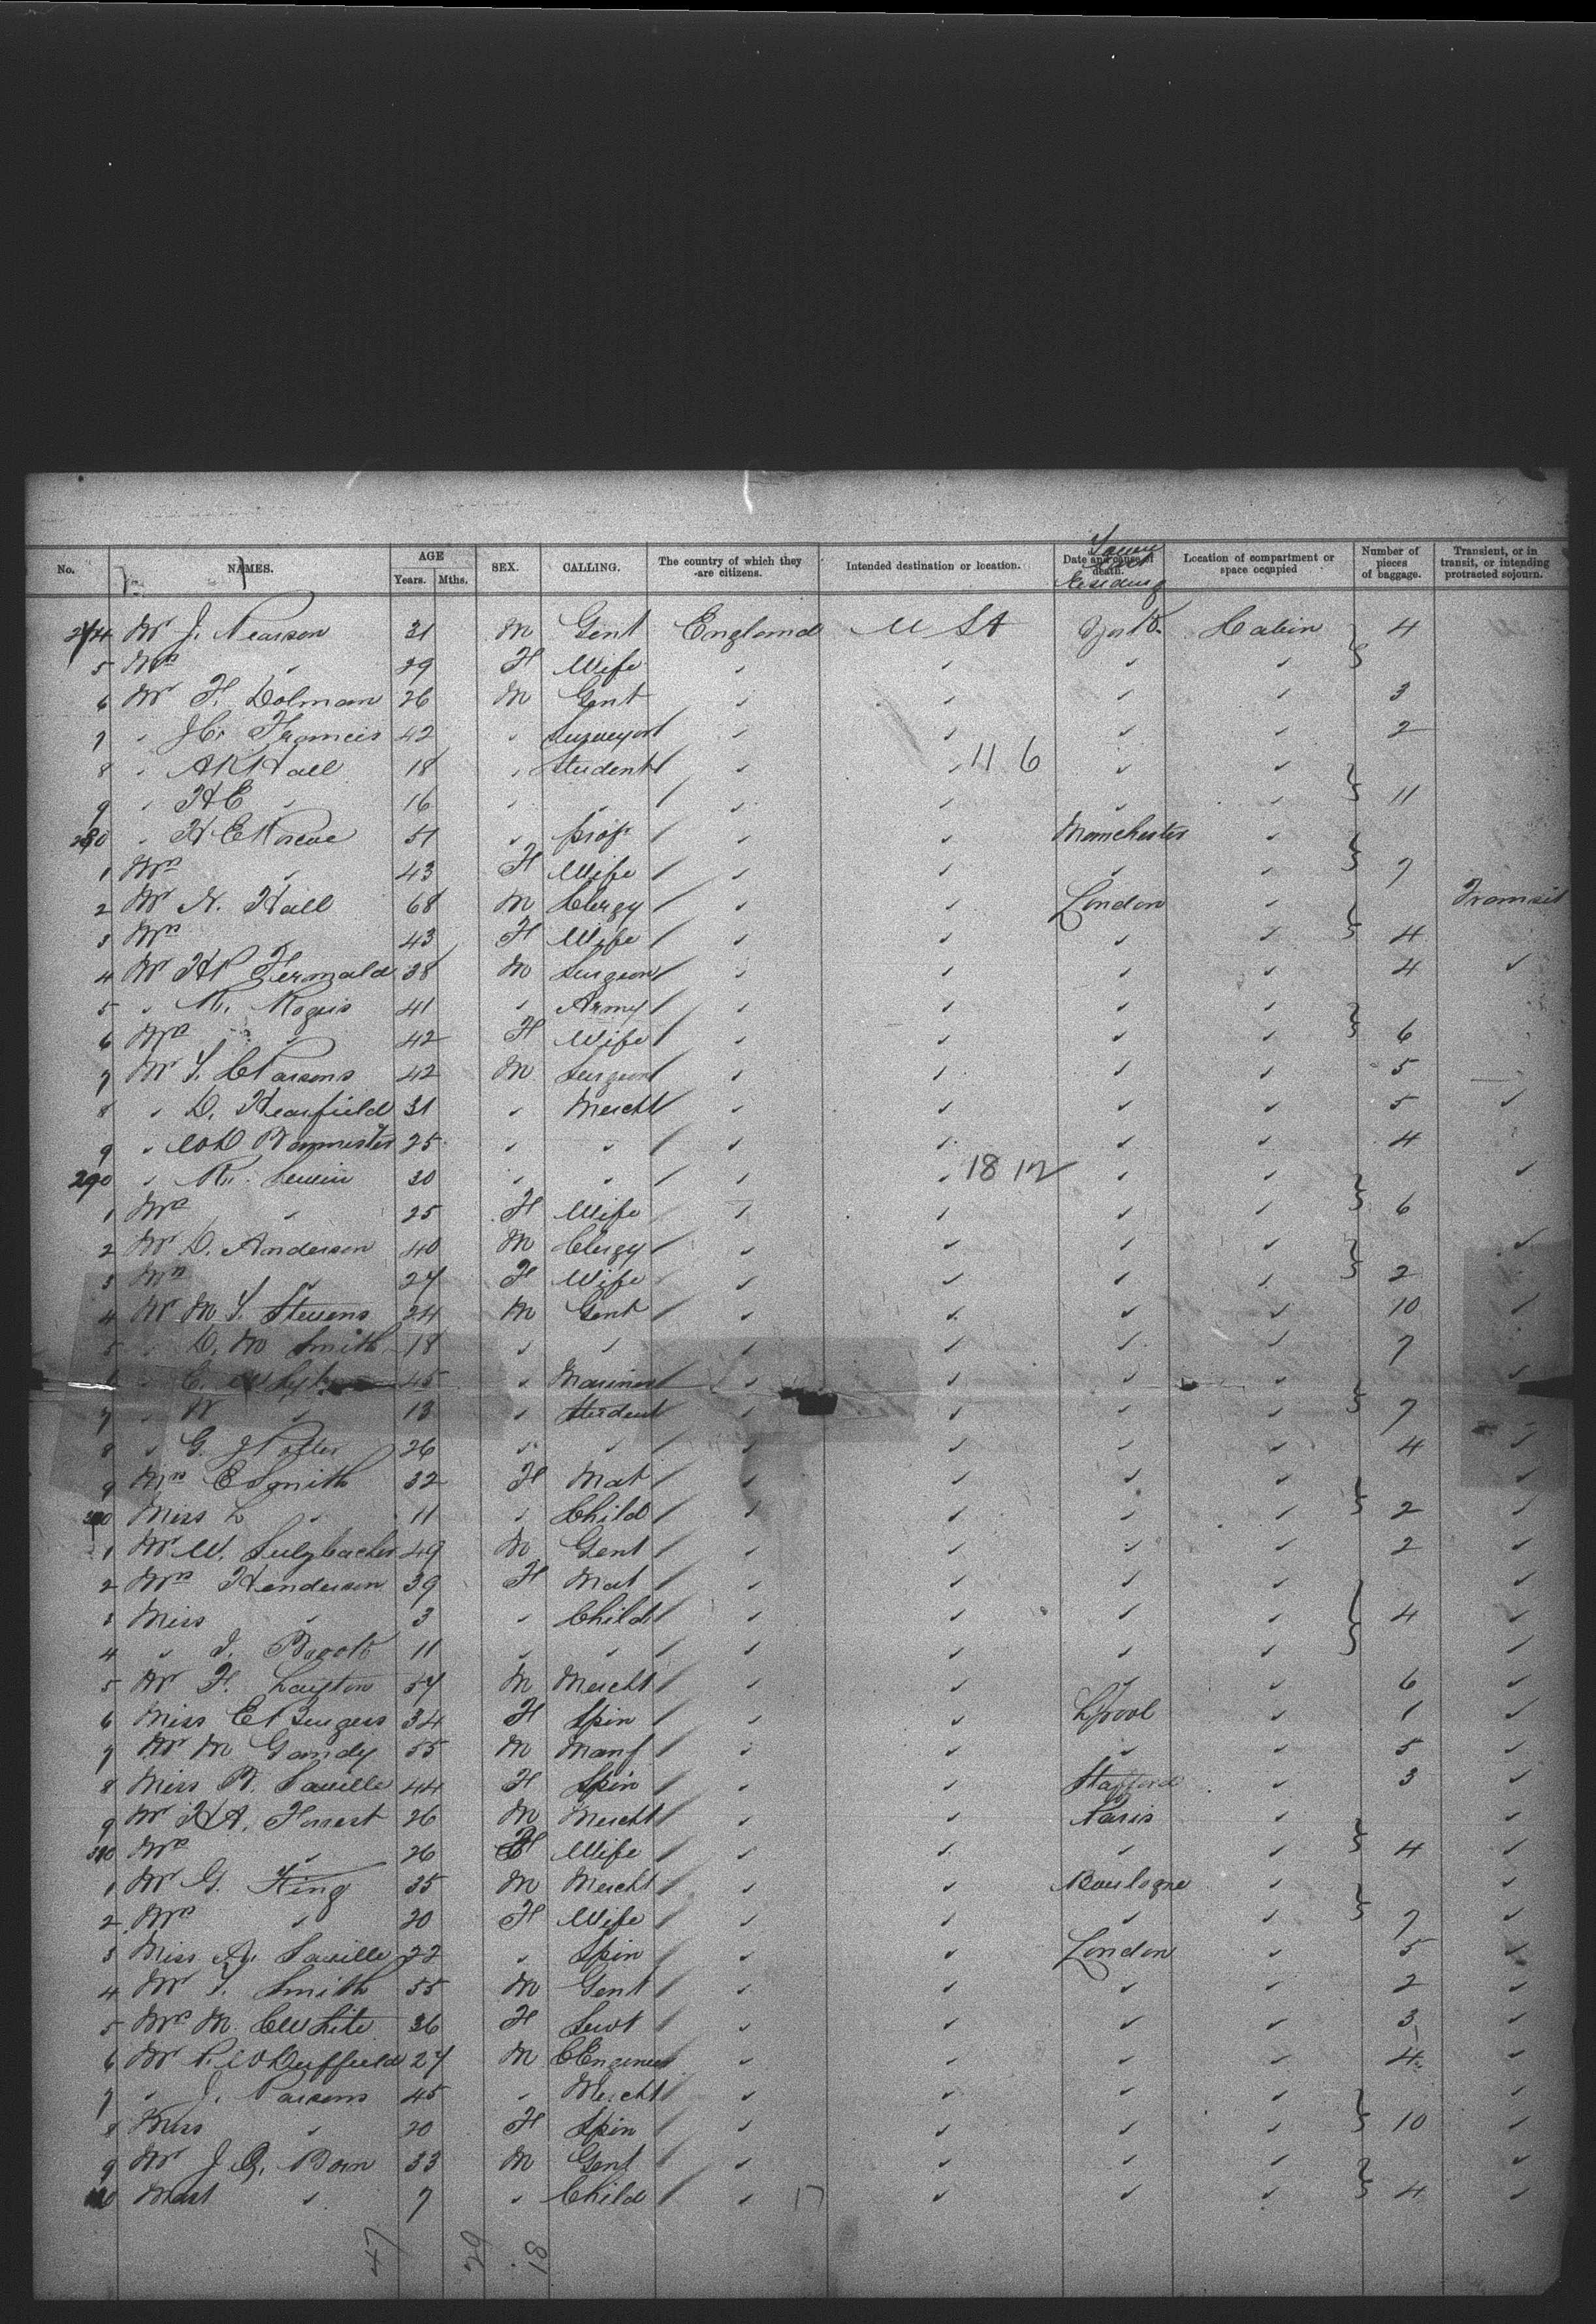 No. NAMES. AGE Years. Mths. SEX. CALLING. The country of which they are citizens. Intended destination or location. Date and cause of death. Location of compartment or space occupied Number of pieces of baggage. Transient, or in transit, or intending protracted sojourn.
Residing
274 Mr J. Pearson 31 M Gent England USA York Cabin 4
5 Mrs " 29 F Wife " " " "
6 Mr F. Dolman 26 M Gent " " " " 3
7 " J.C. Francis 42 " Surveyor " " " " 2
8 " A K Hall 18 " Student " " 116 " "
9 " H E " 16 " " " " " " 11
280 " H E Roscoe 51 " prof " " Manchester "
1 Mrs " 43 F Wife " " " " 7
2 Mr N. Hall 68 M Clergy " " London " Transit
3 Mrs 43 F Wife " " " " 4
4 Mr H P Fernald 38 M Surgeon " " " " 4 "
5 " R. Rogers 41 " Army " " " "
6 Mrs " 42 F Wife " " " " 6
7 Mr T. C Parsons 42 M Surgeon " " " " 5 —
8 " D. Hearfield 31 " Mercht " " " " 5 "
9 " W D Bannister 25 " " " " " " 4
290 " R. Lewin 30 " " " " 18 12 " " "
1 Mrs " 25 F Wife " " " " 6
2 Mr D. Anderson 40 M Clergy " " " " "
3 Mrs " 27 F Wife " " " " 2
4 Mr M T. Stevens 24 M Gent " " " " 10 "
5 " D. M Smith 18 " " " " " " 7
6 " C. 45 " Mariner " " " " "
7 " W " 13 " Student " " " " 7
8 " G. J Potter 26 " " " " " " 4 "
9 Mrs E Smith 32 F Mat " " " " "
300 Miss L " 11 " Child " " " " 2 "
1 Mr W. Sulzbacher 49 M Gent " " " " 2 "
2 Mrs Henderson 39 F Mat " " " " "
3 Miss " 3 " Child " " " " 4 "
4 " J. 11 " " " " " " "
5 Mr F. Layton 57 M Mercht " " " " 6 "
6 Miss E Burgess 34 F Spin " " L'pool " 1 "
7 Mr M Gandy 55 M Manf " " " " 5 "
8 Miss B. Saville 44 F Spin " " Stafford " 3 "
9 Mr H A. Forrest 26 M Mercht " " Paris " "
310 Mrs " 26 F Wife " " " " 4 "
1 Mr G. King 35 M Mercht " " Boulogne " "
2 Mrs " 20 F Wife " " " " 7 "
3 Miss A. Saville 22 " Spin " " London " 5 "
4 Mr T. Smith 55 M Gent " " " " 2 "
5 Mrs M. C White 36 F Servt " " " " 3 "
6 Mr P. W Duffield 27 M C Engineer " " " " 4 "
7 " J. Parsons 45 " Mercht " " " " "
8 Miss " 20 F Spin " " " " 10 "
9 Mr J G. Born 33 M Gent " " " " "
Mast " 7 " Child " " " " 4 "
47 29 18